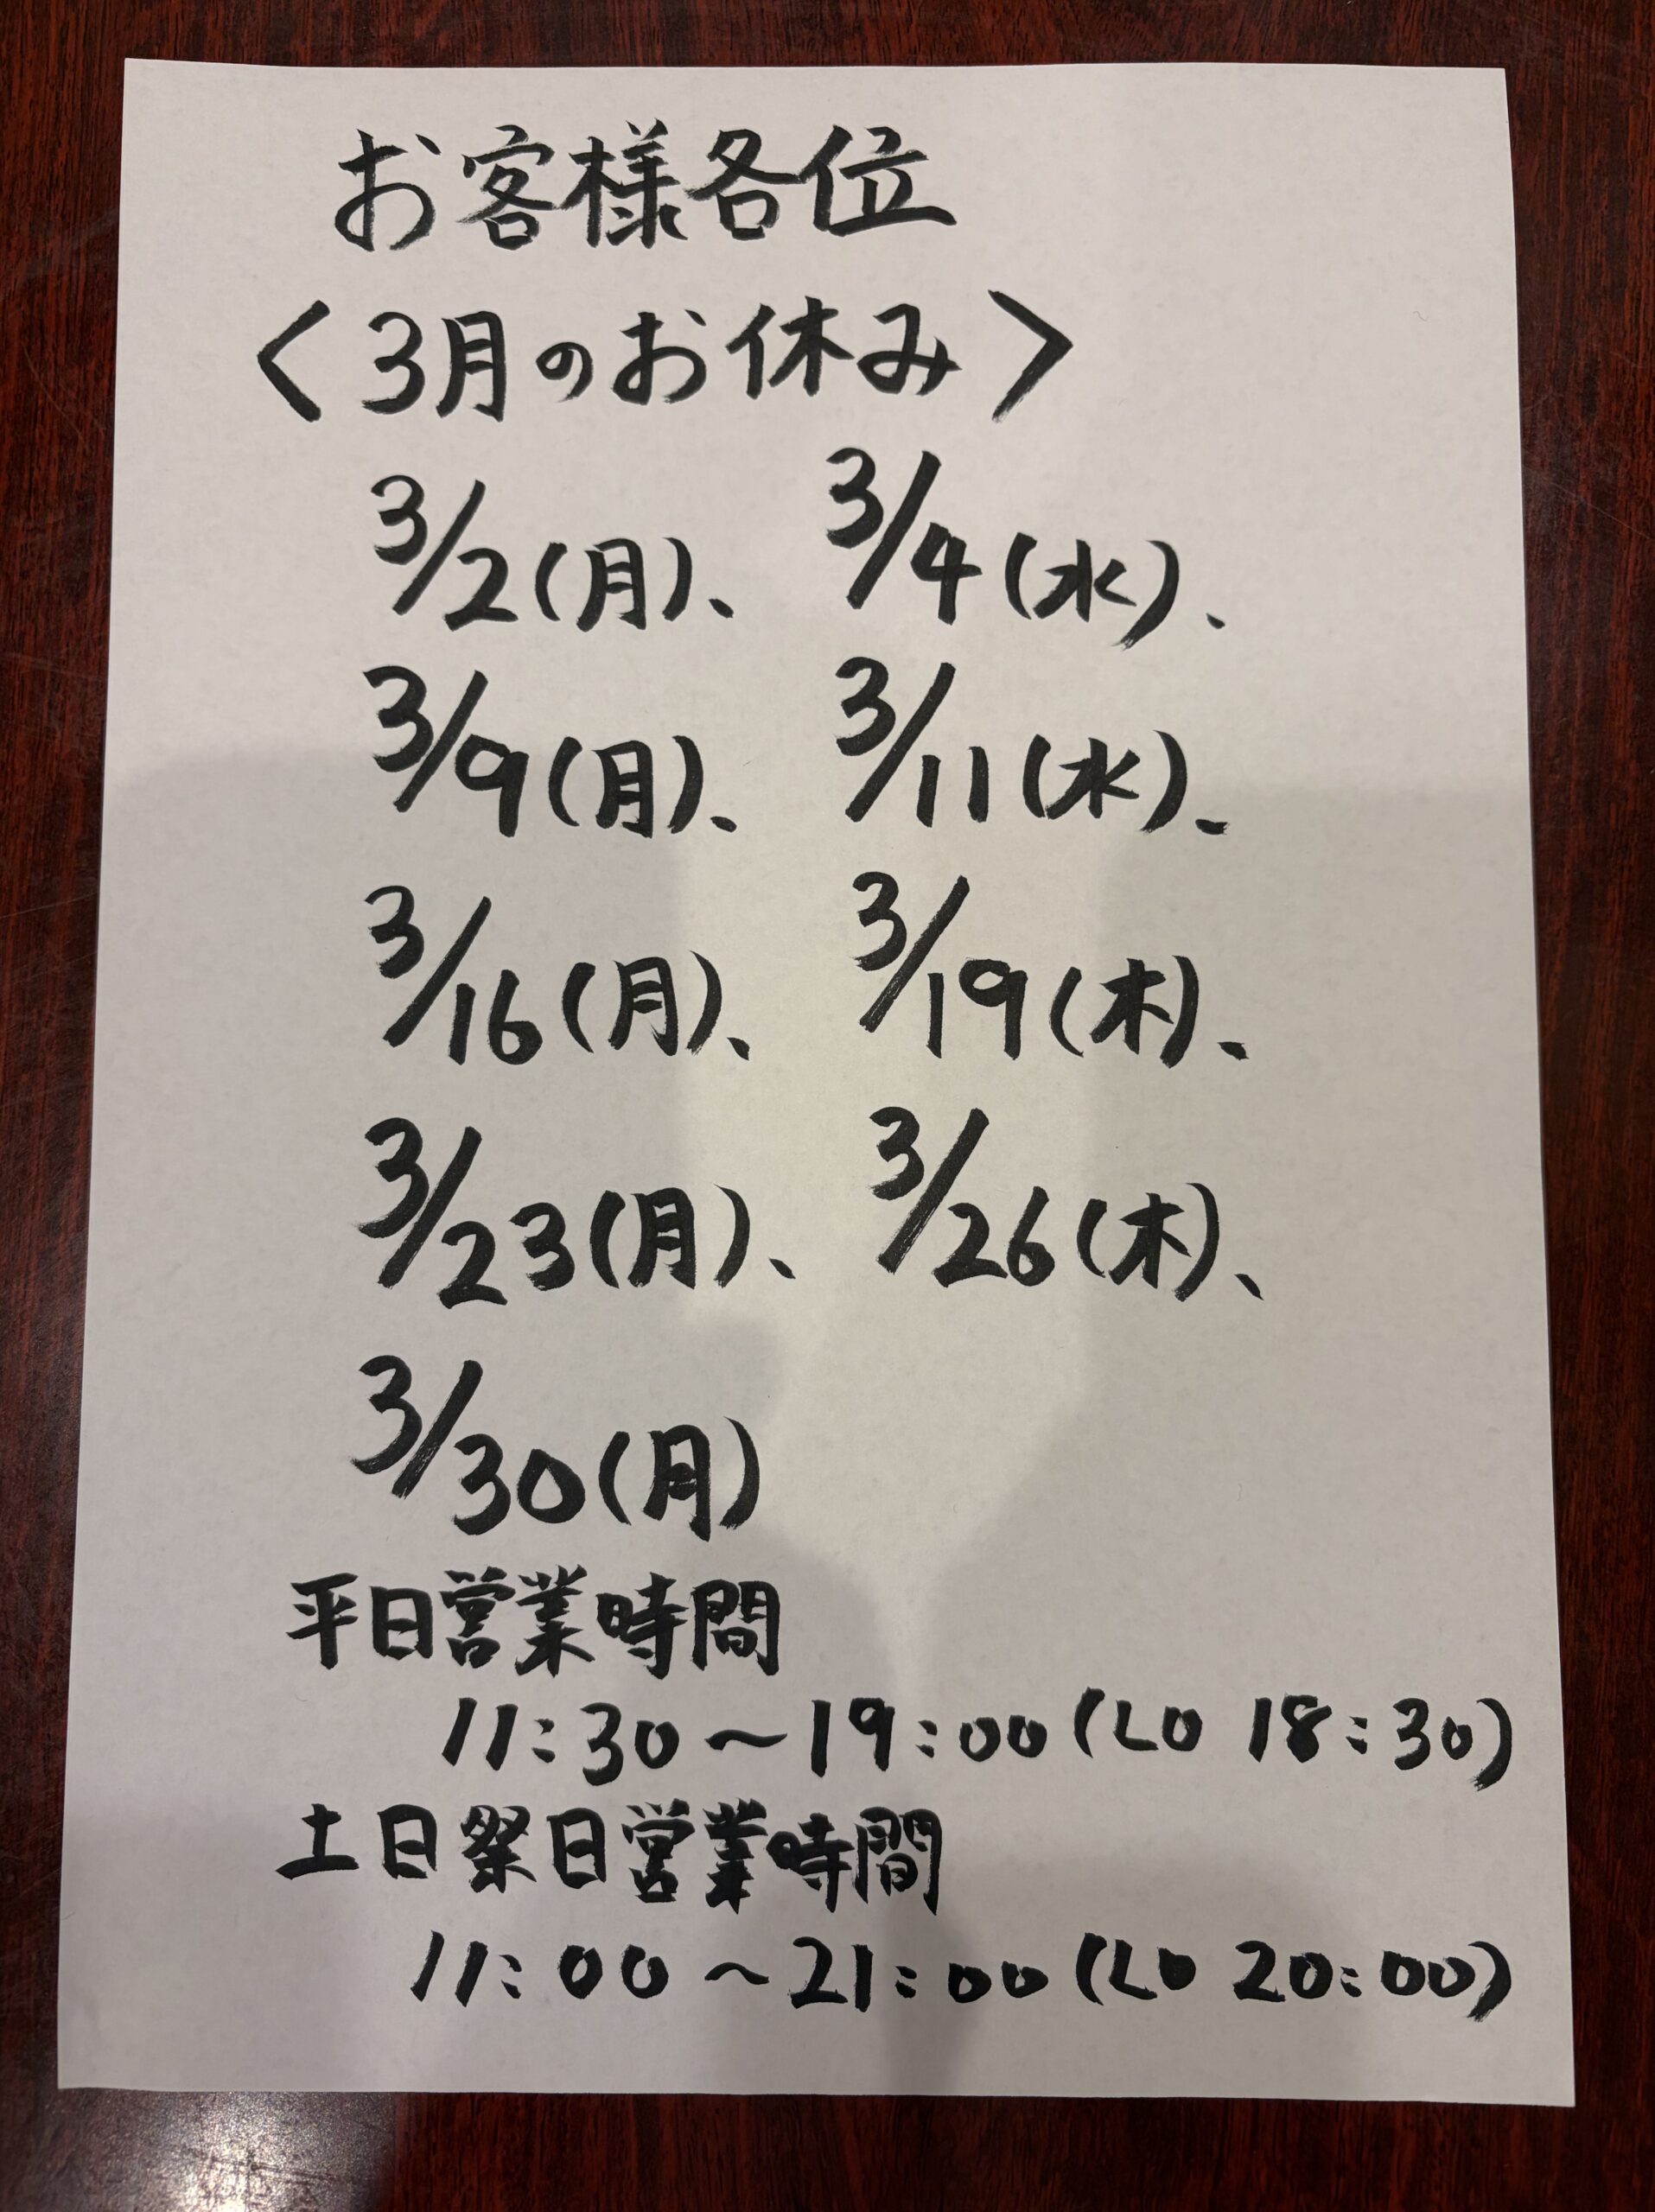 お客様各位
〈3月のお休み〉
3/2(月)、 3/4(水)、
3/9(月)、 3/11(水)、
3/16(月)、 3/19(木)、
3/23(月)、 3/26(木)、
3/30(月)
平日営業時間
11:30〜19:00(LO 18:30)
土日祭日営業時間
11:00〜21:00(LO 20:00)